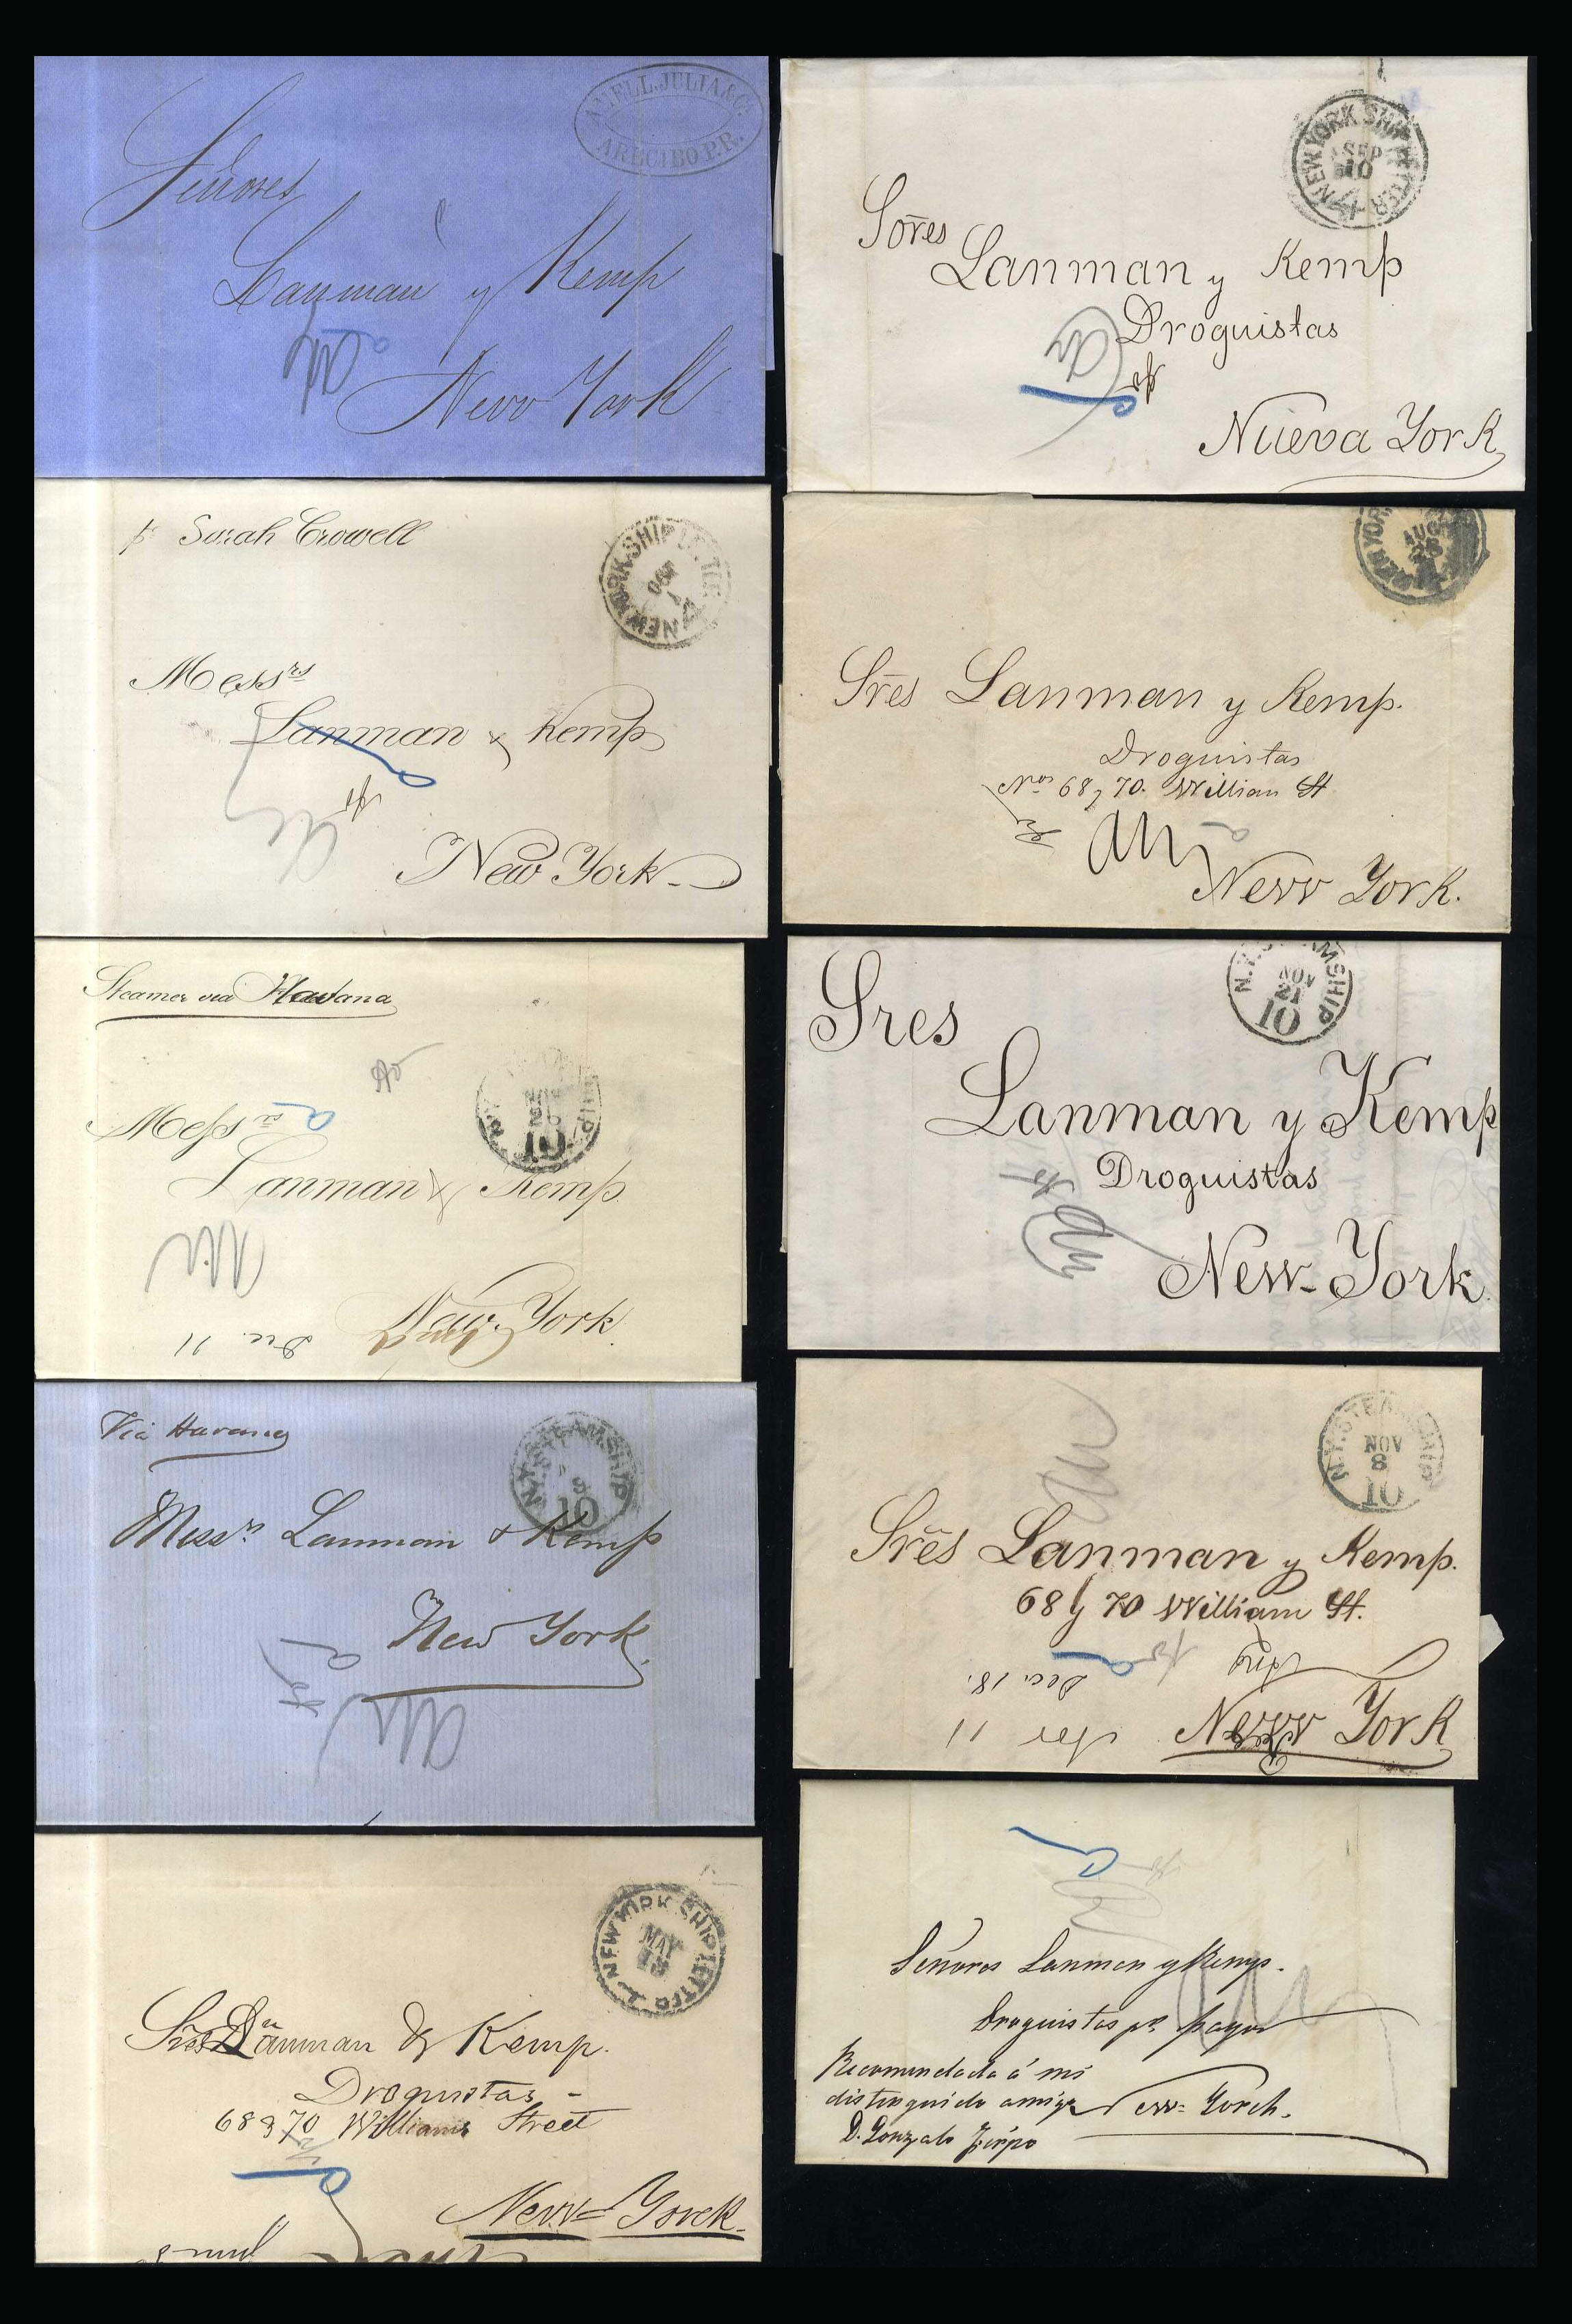 AMELL, JULIA & Cº
ARECIBO P.R.
Señores
Lanman y Kemp
New York
p Sarah Crowell
NEW YORK SHIP LETTER
Messrs
Lanman & Kemp
New York
Steamer via Havana
10
Messrs
Lanman & Kemp.
New York.
Dec. 11
Via Havana
N.Y. STEAMSHIP
10
Messrs Lanman & Kemp
New York.
NEW YORK SHIP LETTER
MAY
13
Sres Lanman & Kemp.
Droguistas
68 y 70 Williams Street
New=Yorck.
NEW YORK SHIP LETTER
SEP
10
Sores
Lanman y Kemp
Droguistas
Nueva York
NEW YORK
AUG
Sres Lanman y Kemp.
Droguistas
Nos 68 y 70. Willian St
New York.
N.Y. STEAMSHIP
NOV
21
10
Sres
Lanman y Kemp
Droguistas
New-York.
N.Y. STEAMSHIP
NOV
8
10
Sres Lanman y Kemp.
68 y 70 William St.
Dec. 18.
New York
Señores Lanman y Kemp.
Droguistas pr. mayor
Recomendada á mi
distinguido amigo
New=Yorch.
D. Gonzalo Firpo